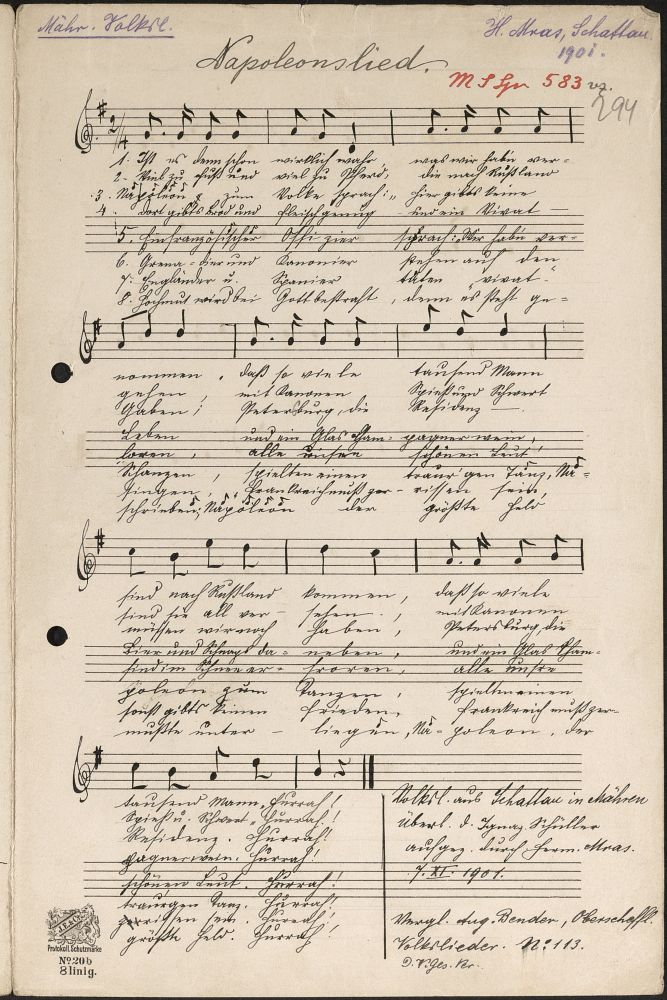 Mähr. Volksl.
H. Mras, Schattau.
1901.
Napoleonslied.
M S Gr 583
294
2/4
1. Ist es denn schon wirklich wahr, was wir haben ver-
2. Viel zu Fuß und viel zu Pferd, die nach Rußland
3. Napoleon zum Volke sprach: „hier gibts keine
4. dort gibts Brod und Fleisch genug und ein Vivat
5. Ein französischer Offizier sprach: „Wir haben ver-
6. Grena-dier und Kanonier stehen auf den
7. Engländer u. Spanier täten „vivat"
8. Hochmut wird bei Gott bestraft, denn es steht ge-
nommen, daß so viele tausend Mann
gehen, mit Kanonen Spieß und Schwert
Gaben; Petersburg, die Residenz
Leben und ein Glas Cham-pagnerwein,
loren, alle unsre schönen Leut
Schanzen, spielten einen traur'gen Tanz, Na-
singen, Frankreich muß zer-rissen sein,
schrieben; Napoleon der größte Held
sind nach Rußland kommen, daß so viele
sind sie all ver-sehen, mit Kanonen
müssen wir noch haben, Petersburg, die
Bier und Schnaps da-neben, und ein Glas Cham-
sind im Schnee er-froren, alle unsre
poleon zum Tanzen, spielten einen
sonst gibts keinen Frieden, Frankreich muß zer-
mußte unter-liegen, Na-poleon, der
tausend Mann, Hurrah!
Spieß u. Schwert. Hurrah!
Residenz. Hurrah!
pagnerwein. Hurrah!
schönen Leut. Hurrah!
traurgen Tanz. Hurrah!
zerrissen sein. Hurrah!
größte Held. Hurrah!
Volksl. aus Schattau in Mähren
überl. d. Ignaz Schüller
aufgez. durch Herm. Mras.
7. XI. 1901.
Vergl. Aug. Bender, Oberscheffl.
Volkslieder. No 113.
Protokoll. Schutzmarke
No. 20 b
8 linig.